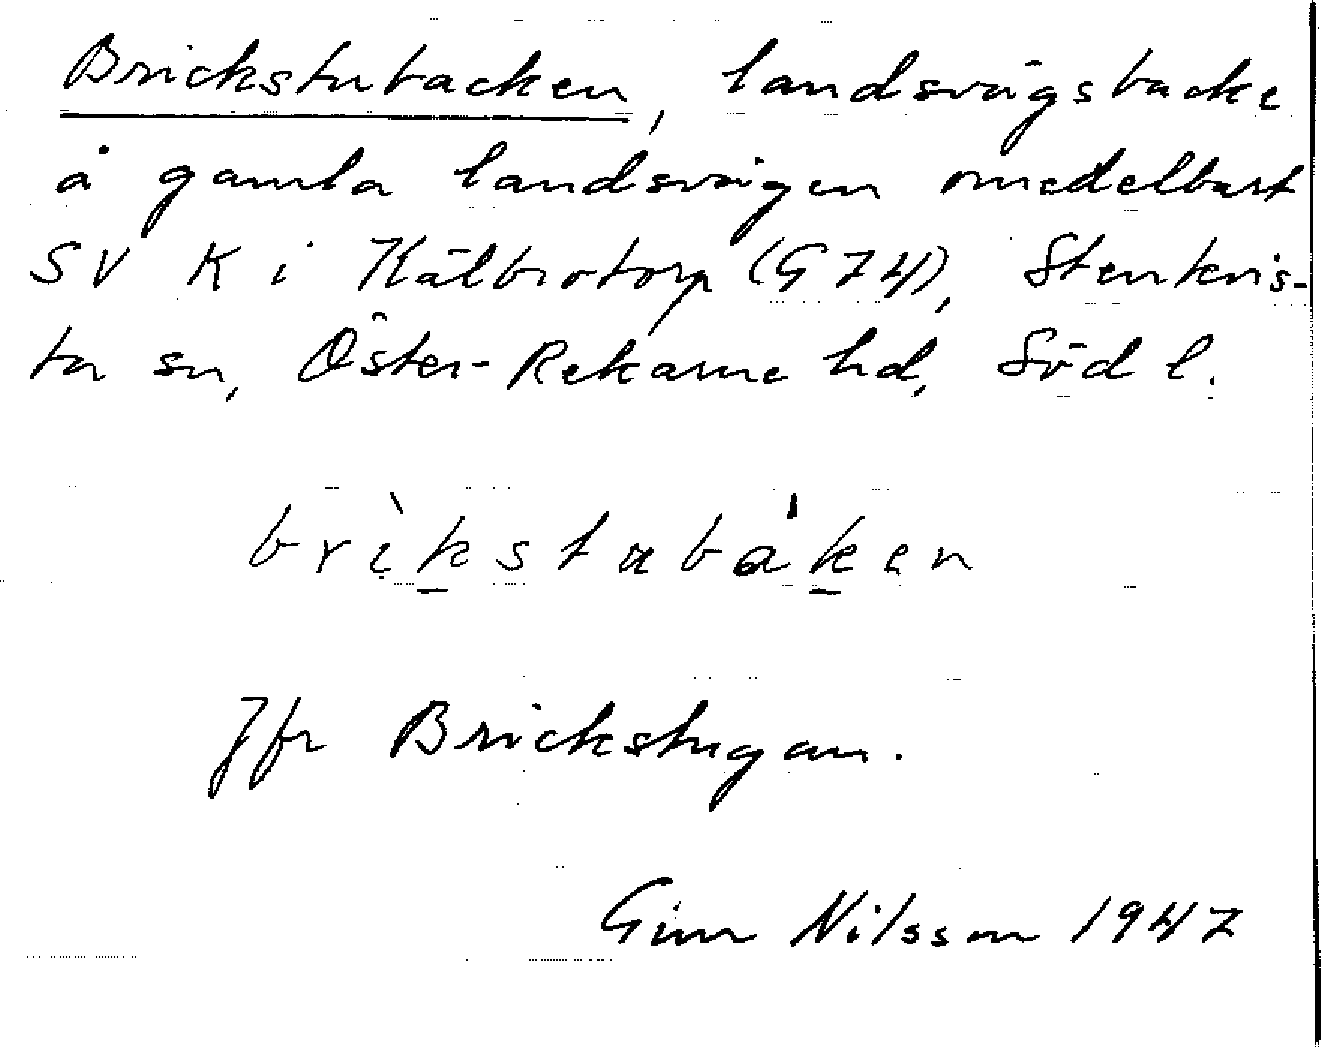 Brickstubacken, landsvägsbacke
å gamla landsvägen omedelbart
SV K i Kälbrotorp (G 74), Stenkvis-
ta sn, Öster-Rekarne hd, Södl.
brìkstubáken
Jfr Brickstugan.
Gun Nilsson 1947